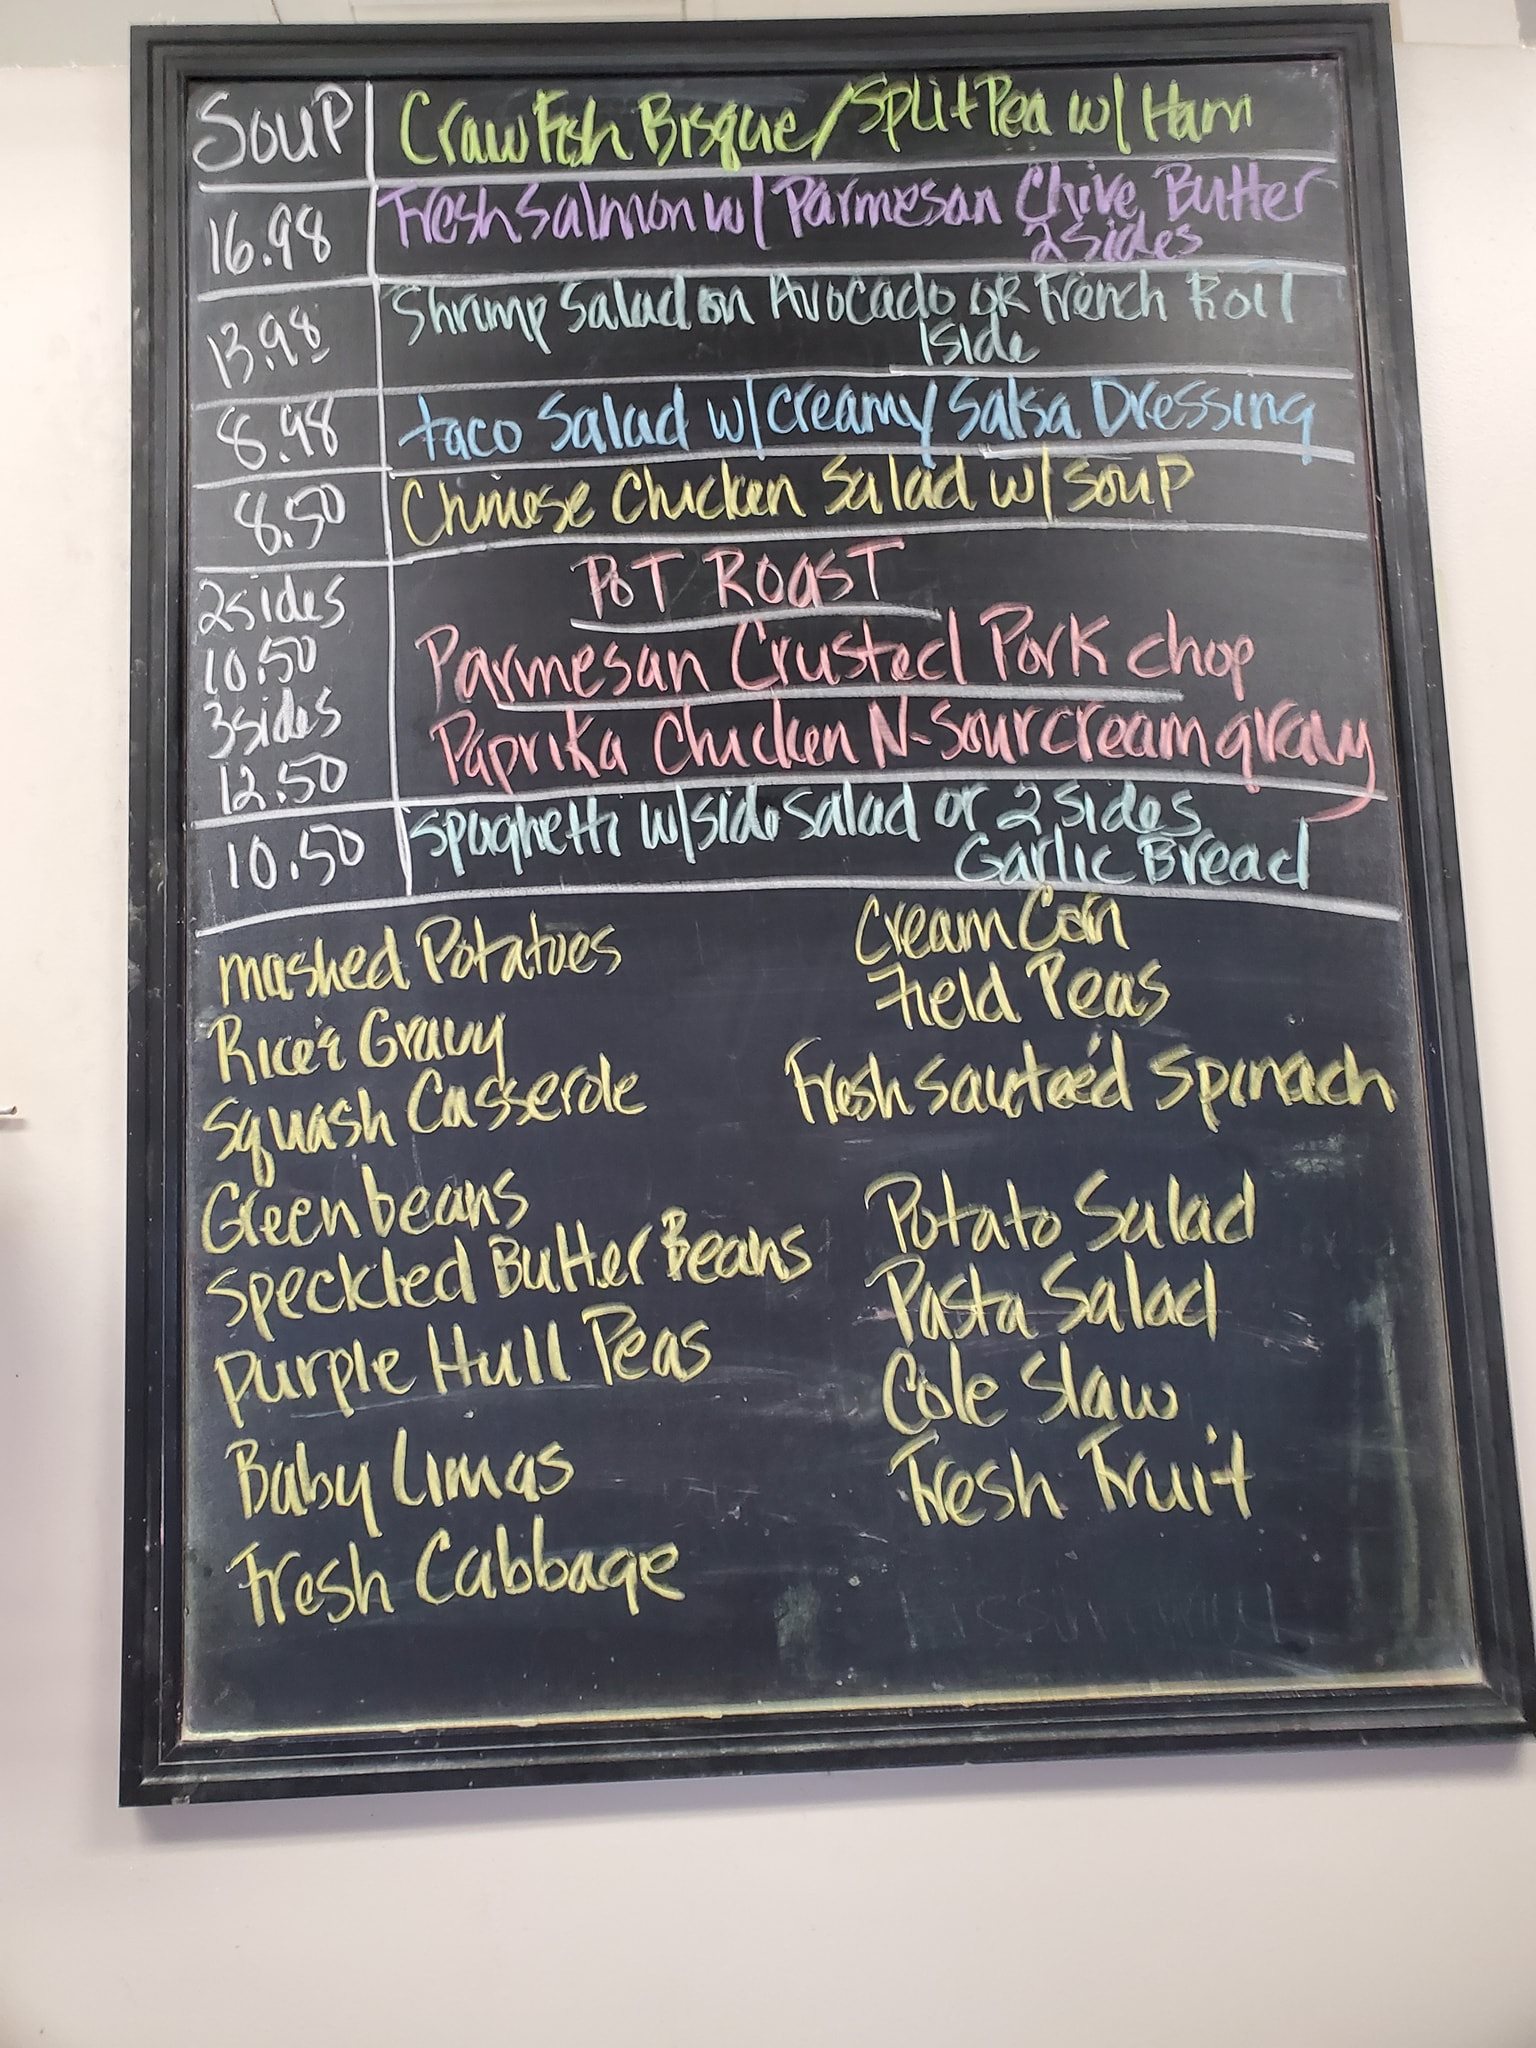 Soup CrawFish Bisque/Split Pea w/ Ham
16.98 Fresh Salmon w/ Parmesan Chive Butter
2 Sides
13.98 Shrimp Salad on Avocado or French Roll
1 Side
8.98 Taco Salad w/ Creamy Salsa Dressing
8.50 Chinese Chicken Salad w/ Soup
2 sides
10.50
3 sides
12.50
POT ROAST
Parmesan Crusted Pork chop
Paprika Chicken N-Sour cream gravy
10.50 Spaghetti w/ side salad or 2 Sides
Garlic Bread
Mashed Potatoes
Rice & Gravy
Squash Casserole
Green beans
Speckled Butter Beans
Purple Hull Peas
Baby Limas
Fresh Cabbage
Cream Corn
Field Peas
Fresh sauteéd Spinach
Potato Salad
Pasta Salad
Cole Slaw
Fresh Fruit